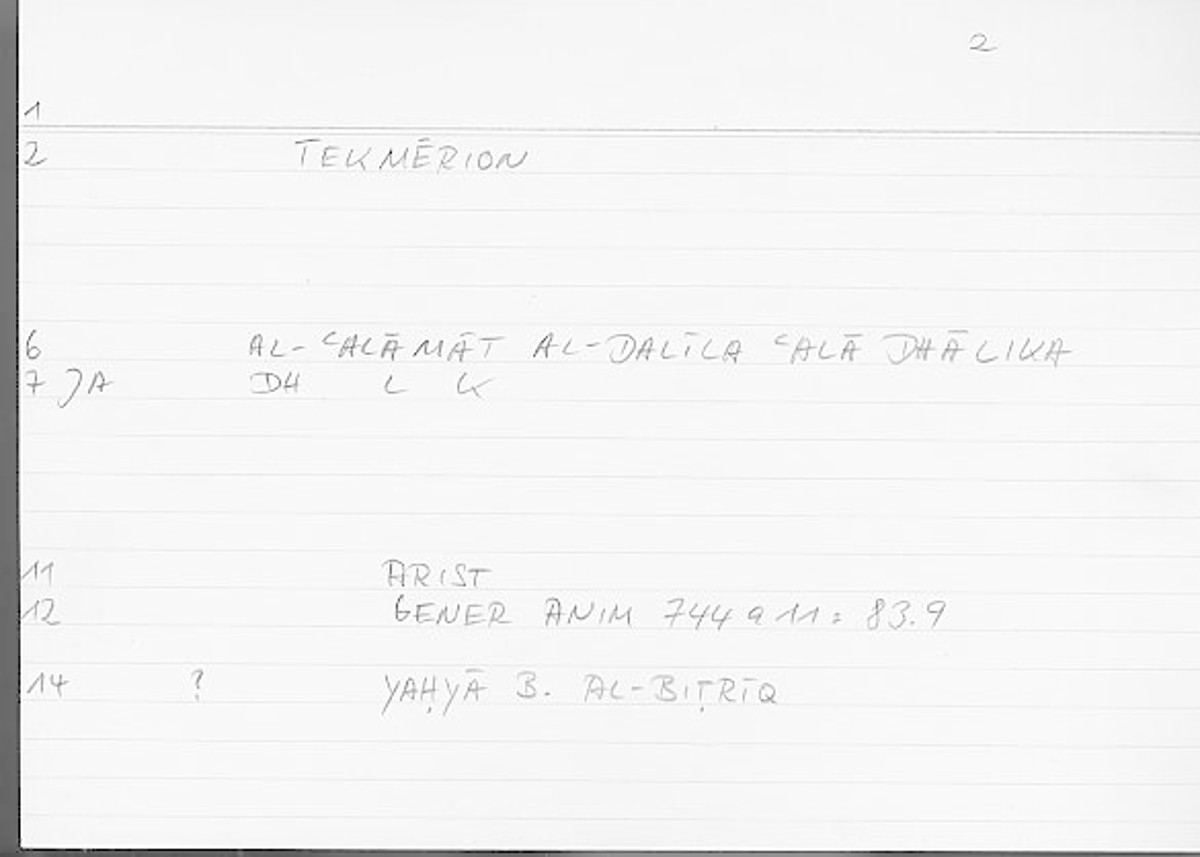 2
1
2 TEKMĒRION
6 AL-ʿALĀMĀT AL-DALĪLA ʿALĀ DHĀLIKA
7 JA DH L K
11 ARIST
12 GENER ANIM 744 a 11 = 83.9
14 ? YAḤYĀ B. AL-BIṬRĪQ